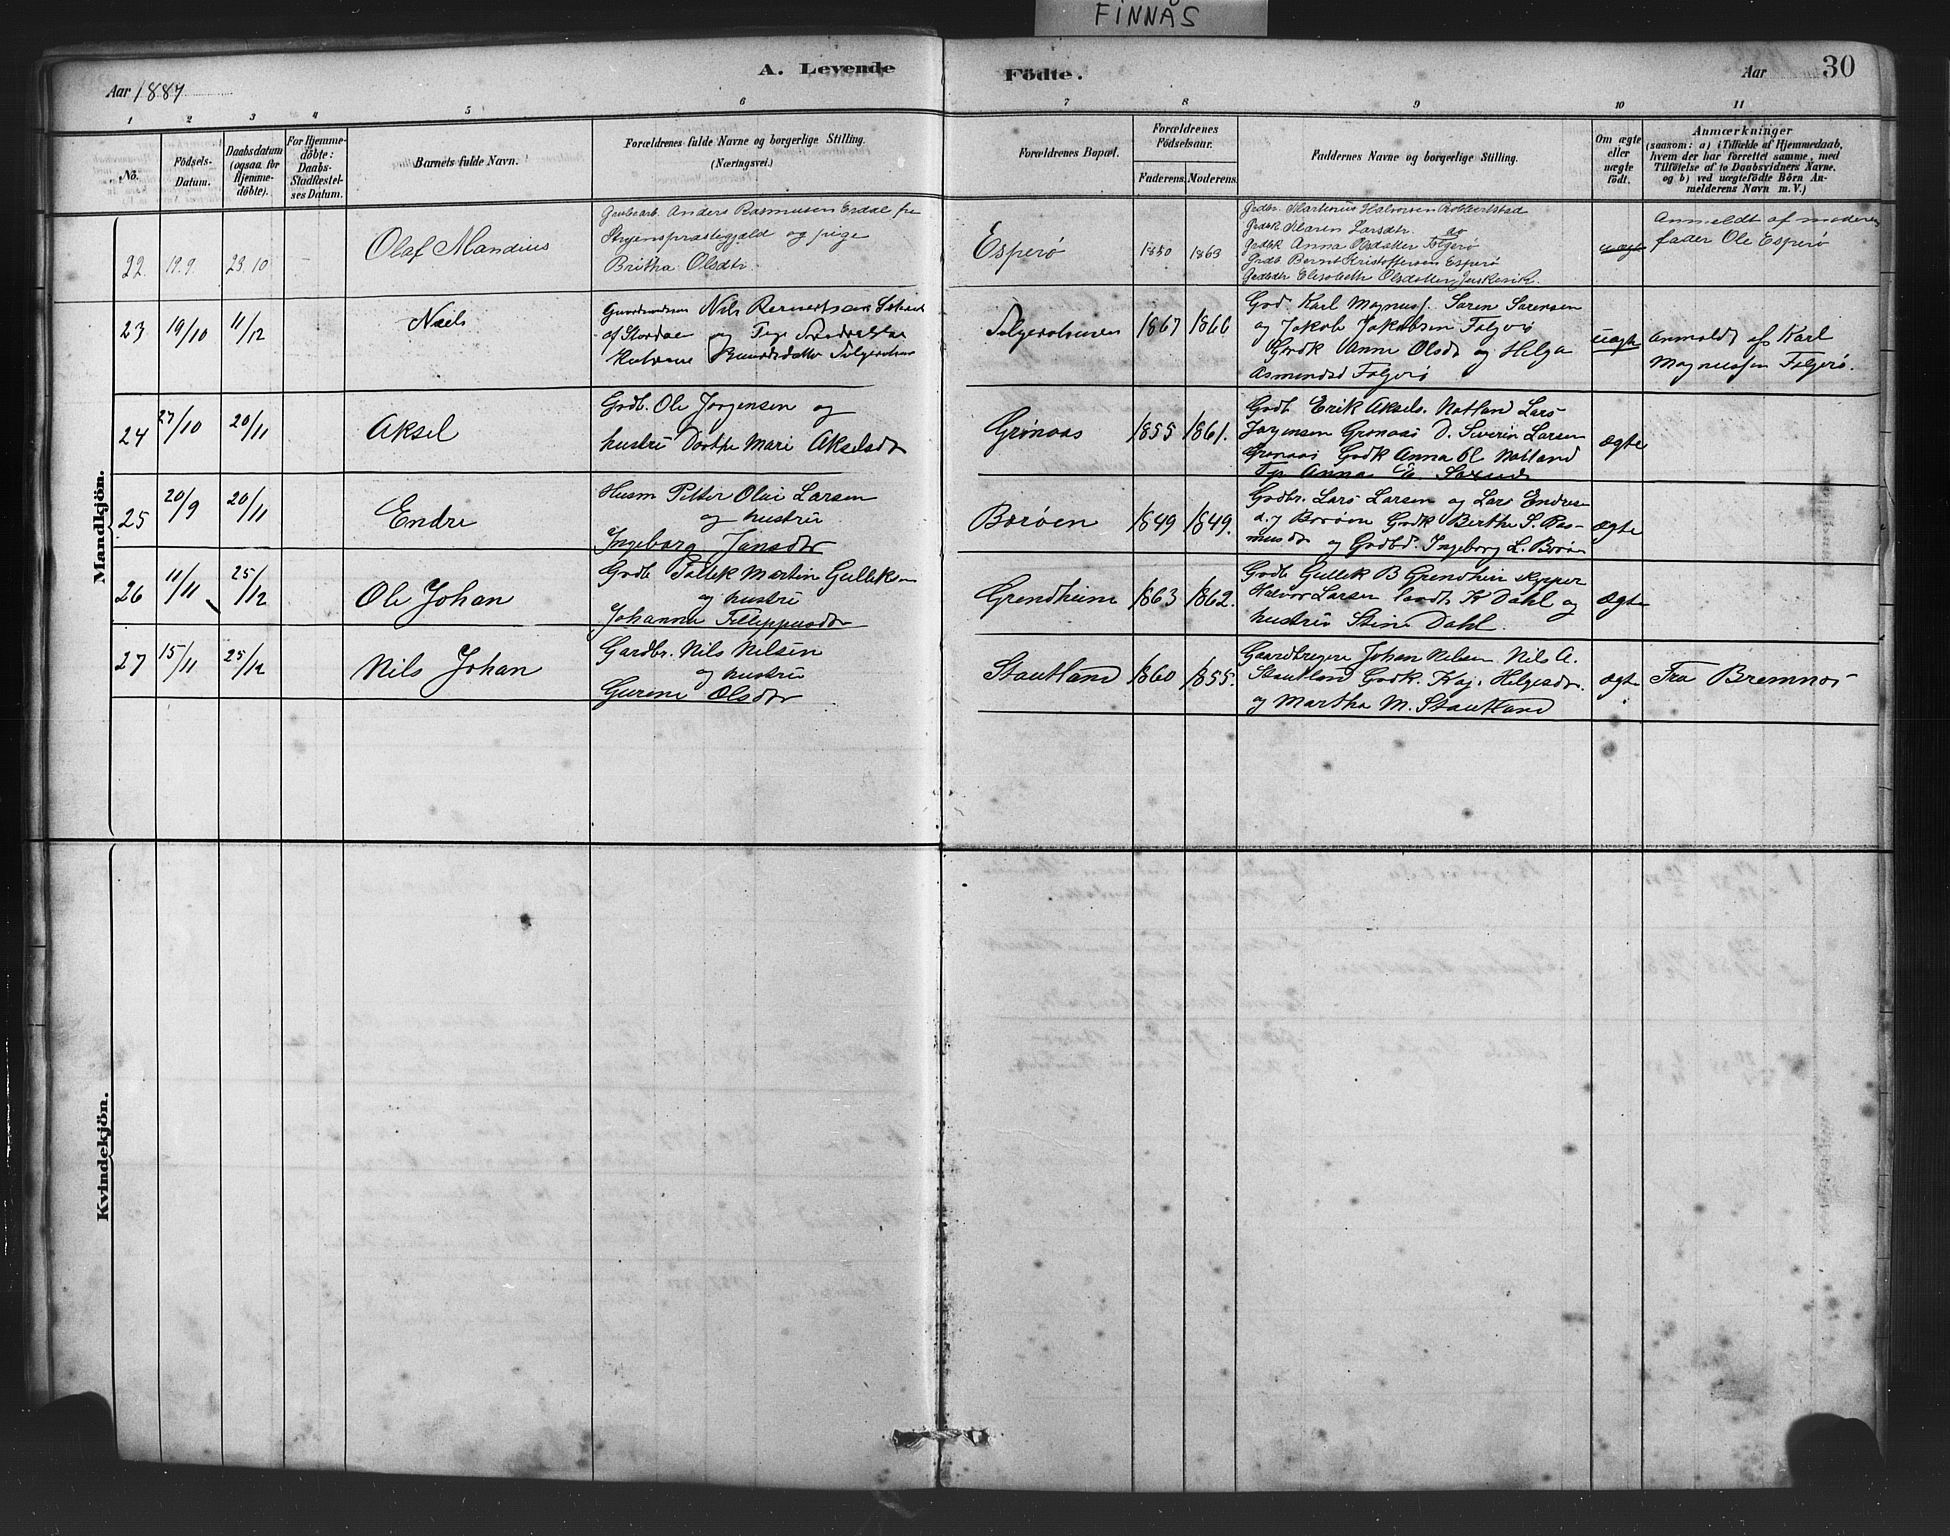 FINNÅS
Aar 1887
A. Levende Födte.
Aar
30
1 2 3 4 5 6 7 8 9 10 11
No.
Födsels-Datum.
Daabsdatum (ogsaa for Hjemme-döbte).
For Hjemme-döbte: Daabs-Stadfæstel-ses Datum.
Barnets fulde Navn.
Forældrenes fulde Navne og borgerlige Stilling. (Næringsvei.)
Forældrenes Bopæl.
Forældrenes Födselsaar.
Faderens. Moderens.
Faddernes Navne og borgerlige Stilling.
Om ægte eller uægte födt.
Anmærkninger
(saasom: a) i Tilfælde af Hjemmedaab, hvem der har forrettet samme, med Tilföielse af to Daabsvidners Navne, og b) ved uægtefödte Börn An-melderens Navn m. V.)
Mandkjön.
22. 19.9. 23.10 Olaf Mandius
Anders Rasmusen Esdal fra
Stryenspræstegjæld og pige
Britha Olsdtr.
Esperø 1850 1863
Grdbr. Martinus Halvorsen
Grdbk Maren Larsdtr. og
Grdbk Anna Olsdatter Folgerø
Grdb. Bernt Kristoffersen Esperø
Elisabeth Olsdatter
uægte
Anmeldt af moderens
fader Ole Esperø
23 19/10 11/12 Naels
Nils
af Stordøe og Pige
1867 1866
Grd. Karl Magnuss. Søren Sørensen
og Jakob Jakobsen Folgerø
Grdk Anne Olsdt og Helga
Asmundsd Folgerø
uægte
Anmeldt af Karl
Magnussen Folgerø.
24 27/10 20/11 Aksel
Grdb. Ole Jørgensen og
hustru Dorthe Mari Akselsdtr
Grønaas 1855 1861.
Grdb Erik Aksels. Notland Lars
Jørgensen Grønaas D. Severin Larsen
Grønaas Grdk Anna Ol Notland
Anna
ægte
25 20/9 20/11 Endre
Husm Petter Olai Larsen
og hustru
Ingeborg Jansdtr
Børøen 1849 1849.
Grdbr. Lars Larsen og Lars Endres
Børøen Grdk Berthe S. Ras-
musdt og Grdbd. Ingeborg L. Børø
ægte
26 11/11 25/12 Ole Johan
Grdb Tollek Martin Gulleks-
og hustru
Johanna Fillippusdtr
Grendheim 1863 1862.
Grdb Gullek B Grendheim skipper
Halvor Larsen K Dahl og
hustru Stine Dahl.
ægte
27 15/11 25/12 Nils Johan
Gardbr. Nils Nilsen
og hustru
Gurine Olsdtr
Stautland 1860 1855.
Gaardbrugere Johan Nilsen Nils A.
Stautland Grdk. Kaj. Helgesdtr.
og Martha M. Stautland
ægte
Fra Bremnes
Kvindekjön.